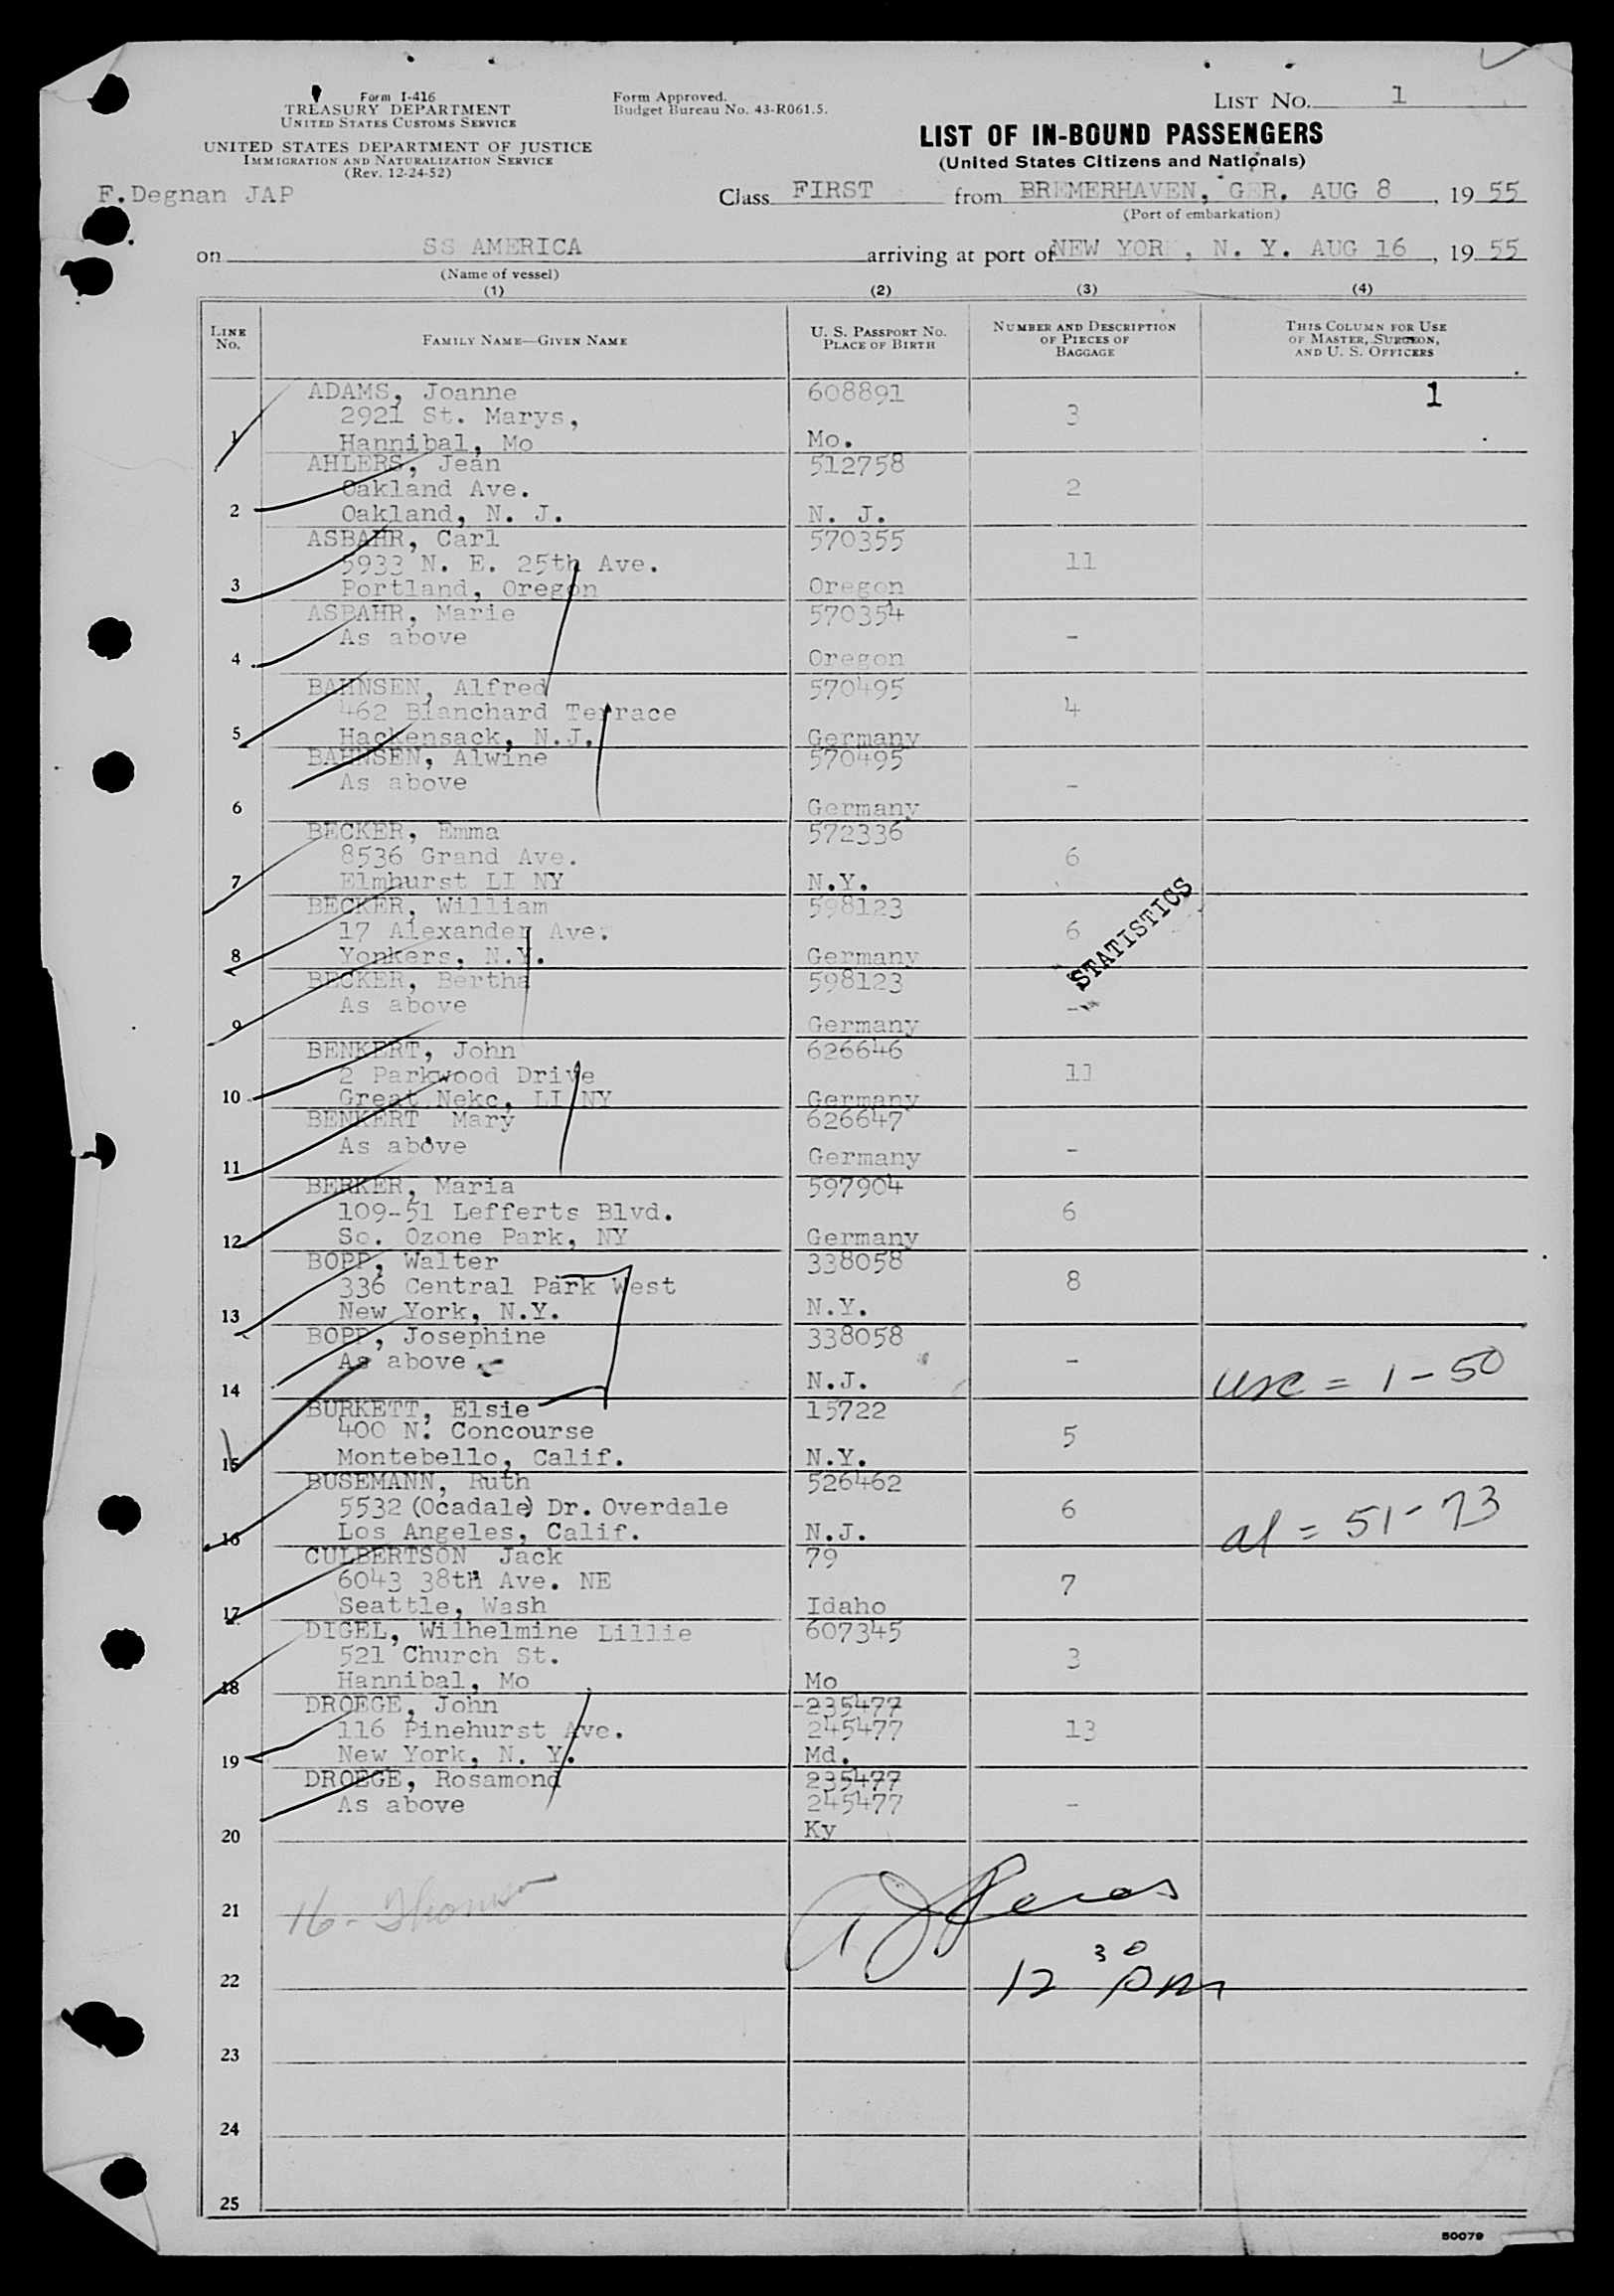 Form I-416
TREASURY DEPARTMENT
UNITED STATES CUSTOMS SERVICE
UNITED STATES DEPARTMENT OF JUSTICE
IMMIGRATION AND NATURALIZATION SERVICE
(Rev. 12-24-52)
Form Approved.
Budget Bureau No. 43-R061.5.
LIST NO. 1
LIST OF IN-BOUND PASSENGERS
(United States Citizens and Nationals)
F.Degnan JAP
Class FIRST from BREMERHAVEN, GER. AUG 8, 19 55
(Port of embarkation)
on SS AMERICA arriving at port of NEW YORK, N. Y. AUG 16, 19 55
(Name of vessel)
(1) (2) (3) (4)
LINE NO. FAMILY NAME—GIVEN NAME U. S. PASSPORT NO. PLACE OF BIRTH NUMBER AND DESCRIPTION OF PIECES OF BAGGAGE THIS COLUMN FOR USE OF MASTER, SURGEON, AND U. S. OFFICERS
ADAMS, Joanne 608891 1
2921 St. Marys, 3
1 Hannibal, Mo Mo.
AHLERS, Jean 512758
Oakland Ave. 2
2 Oakland, N. J. N. J.
ASBAHR, Carl 570355
5933 N. E. 25th Ave. 11
3 Portland, Oregon Oregon
ASBAHR, Marie 570354
As above -
4 Oregon
BAHNSEN, Alfred 570495
462 Blanchard Terrace 4
5 Hackensack, N.J. Germany
BAHNSEN, Alwine 570495
As above -
6 Germany
BECKER, Emma 572336
8536 Grand Ave. 6
7 Elmhurst LI NY N.Y.
BECKER, William 598123
17 Alexander Ave. 6
8 Yonkers, N.Y. Germany
STATISTICS
BECKER, Bertha 598123
As above -
9 Germany
BENKERT, John 626646
2 Parkwood Drive 11
10 Great Nekc, LI NY Germany
BENKERT Mary 626647
As above -
11 Germany
BERKER, Maria 597904
109-51 Lefferts Blvd. 6
12 So. Ozone Park, NY Germany
BOPP, Walter 338058
336 Central Park West 8
13 New York, N.Y. N.Y.
BOPP, Josephine 338058
As above -
14 N.J. usc = 1-50
BURKETT, Elsie 15722
400 N. Concourse 5
15 Montebello, Calif. N.Y.
BUSEMANN, Ruth 526462
5532 (Ocadale) Dr. Overdale 6
16 Los Angeles, Calif. N.J. al = 51-73
CULBERTSON Jack 79
6043 38th Ave. NE 7
17 Seattle, Wash Idaho
DIGEL, Wilhelmine Lillie 607345
521 Church St. 3
18 Hannibal, Mo Mo
DROEGE, John 235477
116 Pinehurst Ave. 245477 13
19 New York, N. Y. Md.
DROEGE, Rosamond 235477
As above 245477 -
20 Ky
21 16-
22 12 30 pm
23
24
25
50079